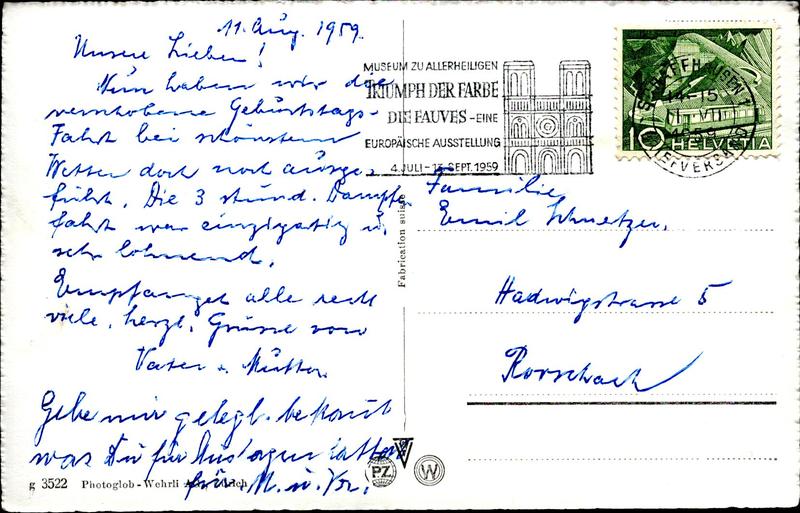 11. Aug. 1959.
Unsere Lieben!
Nun haben wir die
verschobene Geburtstags-
Fahrt bei schönstem
Wetter doch noch ausge-
führt. Die 3 stünd. Dampfer
fahrt war einzigartig u.
sehr lohnend.
Empfanget alle recht
viele, herzl. Grüsse von
Vater u. Mutter
Gebe mir gelegl. bekannt
was Du für Auslagen hattest
für M. u. Vr.
g 3522 Photoglob-Wehrli A.G. Zürich
Fabrication suisse
PZ
W
MUSEUM ZU ALLERHEILIGEN
TRIUMPH DER FARBE
DIE FAUVES - EINE
EUROPÄISCHE AUSSTELLUNG
4. JULI - 13. SEPT. 1959
SCHAFFHAUSEN 1
14-15
1959
BRIEFVERSAND
10 HELVETIA
Familie
Emil Schnetzer,
Hadwigstrasse 5
Rorschach